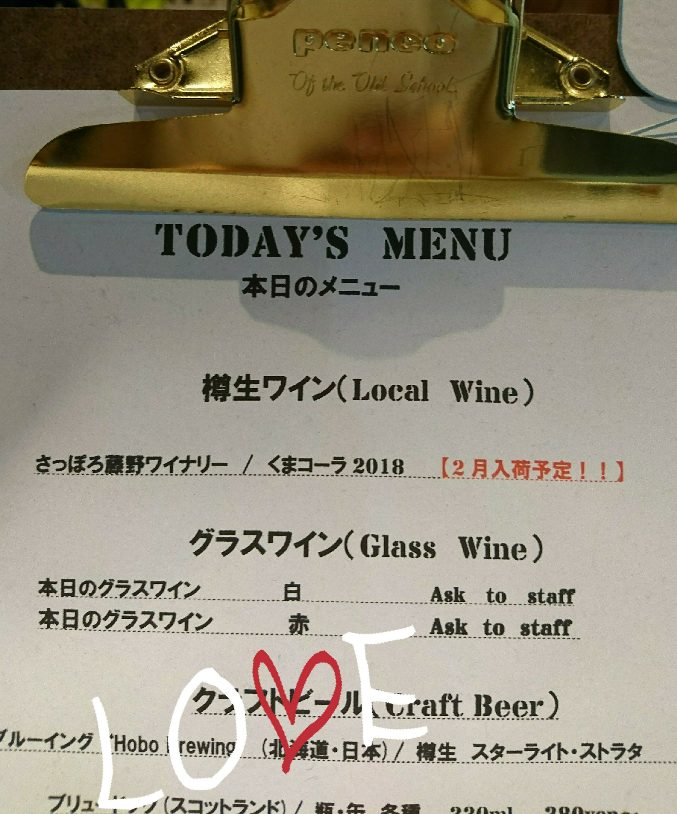 penco
Of the Old School.
TODAY'S MENU
本日のメニュー
樽生ワイン(Local Wine)
さっぽろ藤野ワイナリー / くまコーラ2018 【2月入荷予定!!】
グラスワイン(Glass Wine)
本日のグラスワイン 白 Ask to staff
本日のグラスワイン 赤 Ask to staff
クラフトビール(Craft Beer)
LOVE
ブルーイング "Hobo Brewing" (北海道・日本)/ 樽生 スターライト・ストラタ
ブリュードッグ(スコットランド)/ 瓶・缶 各種 330ml